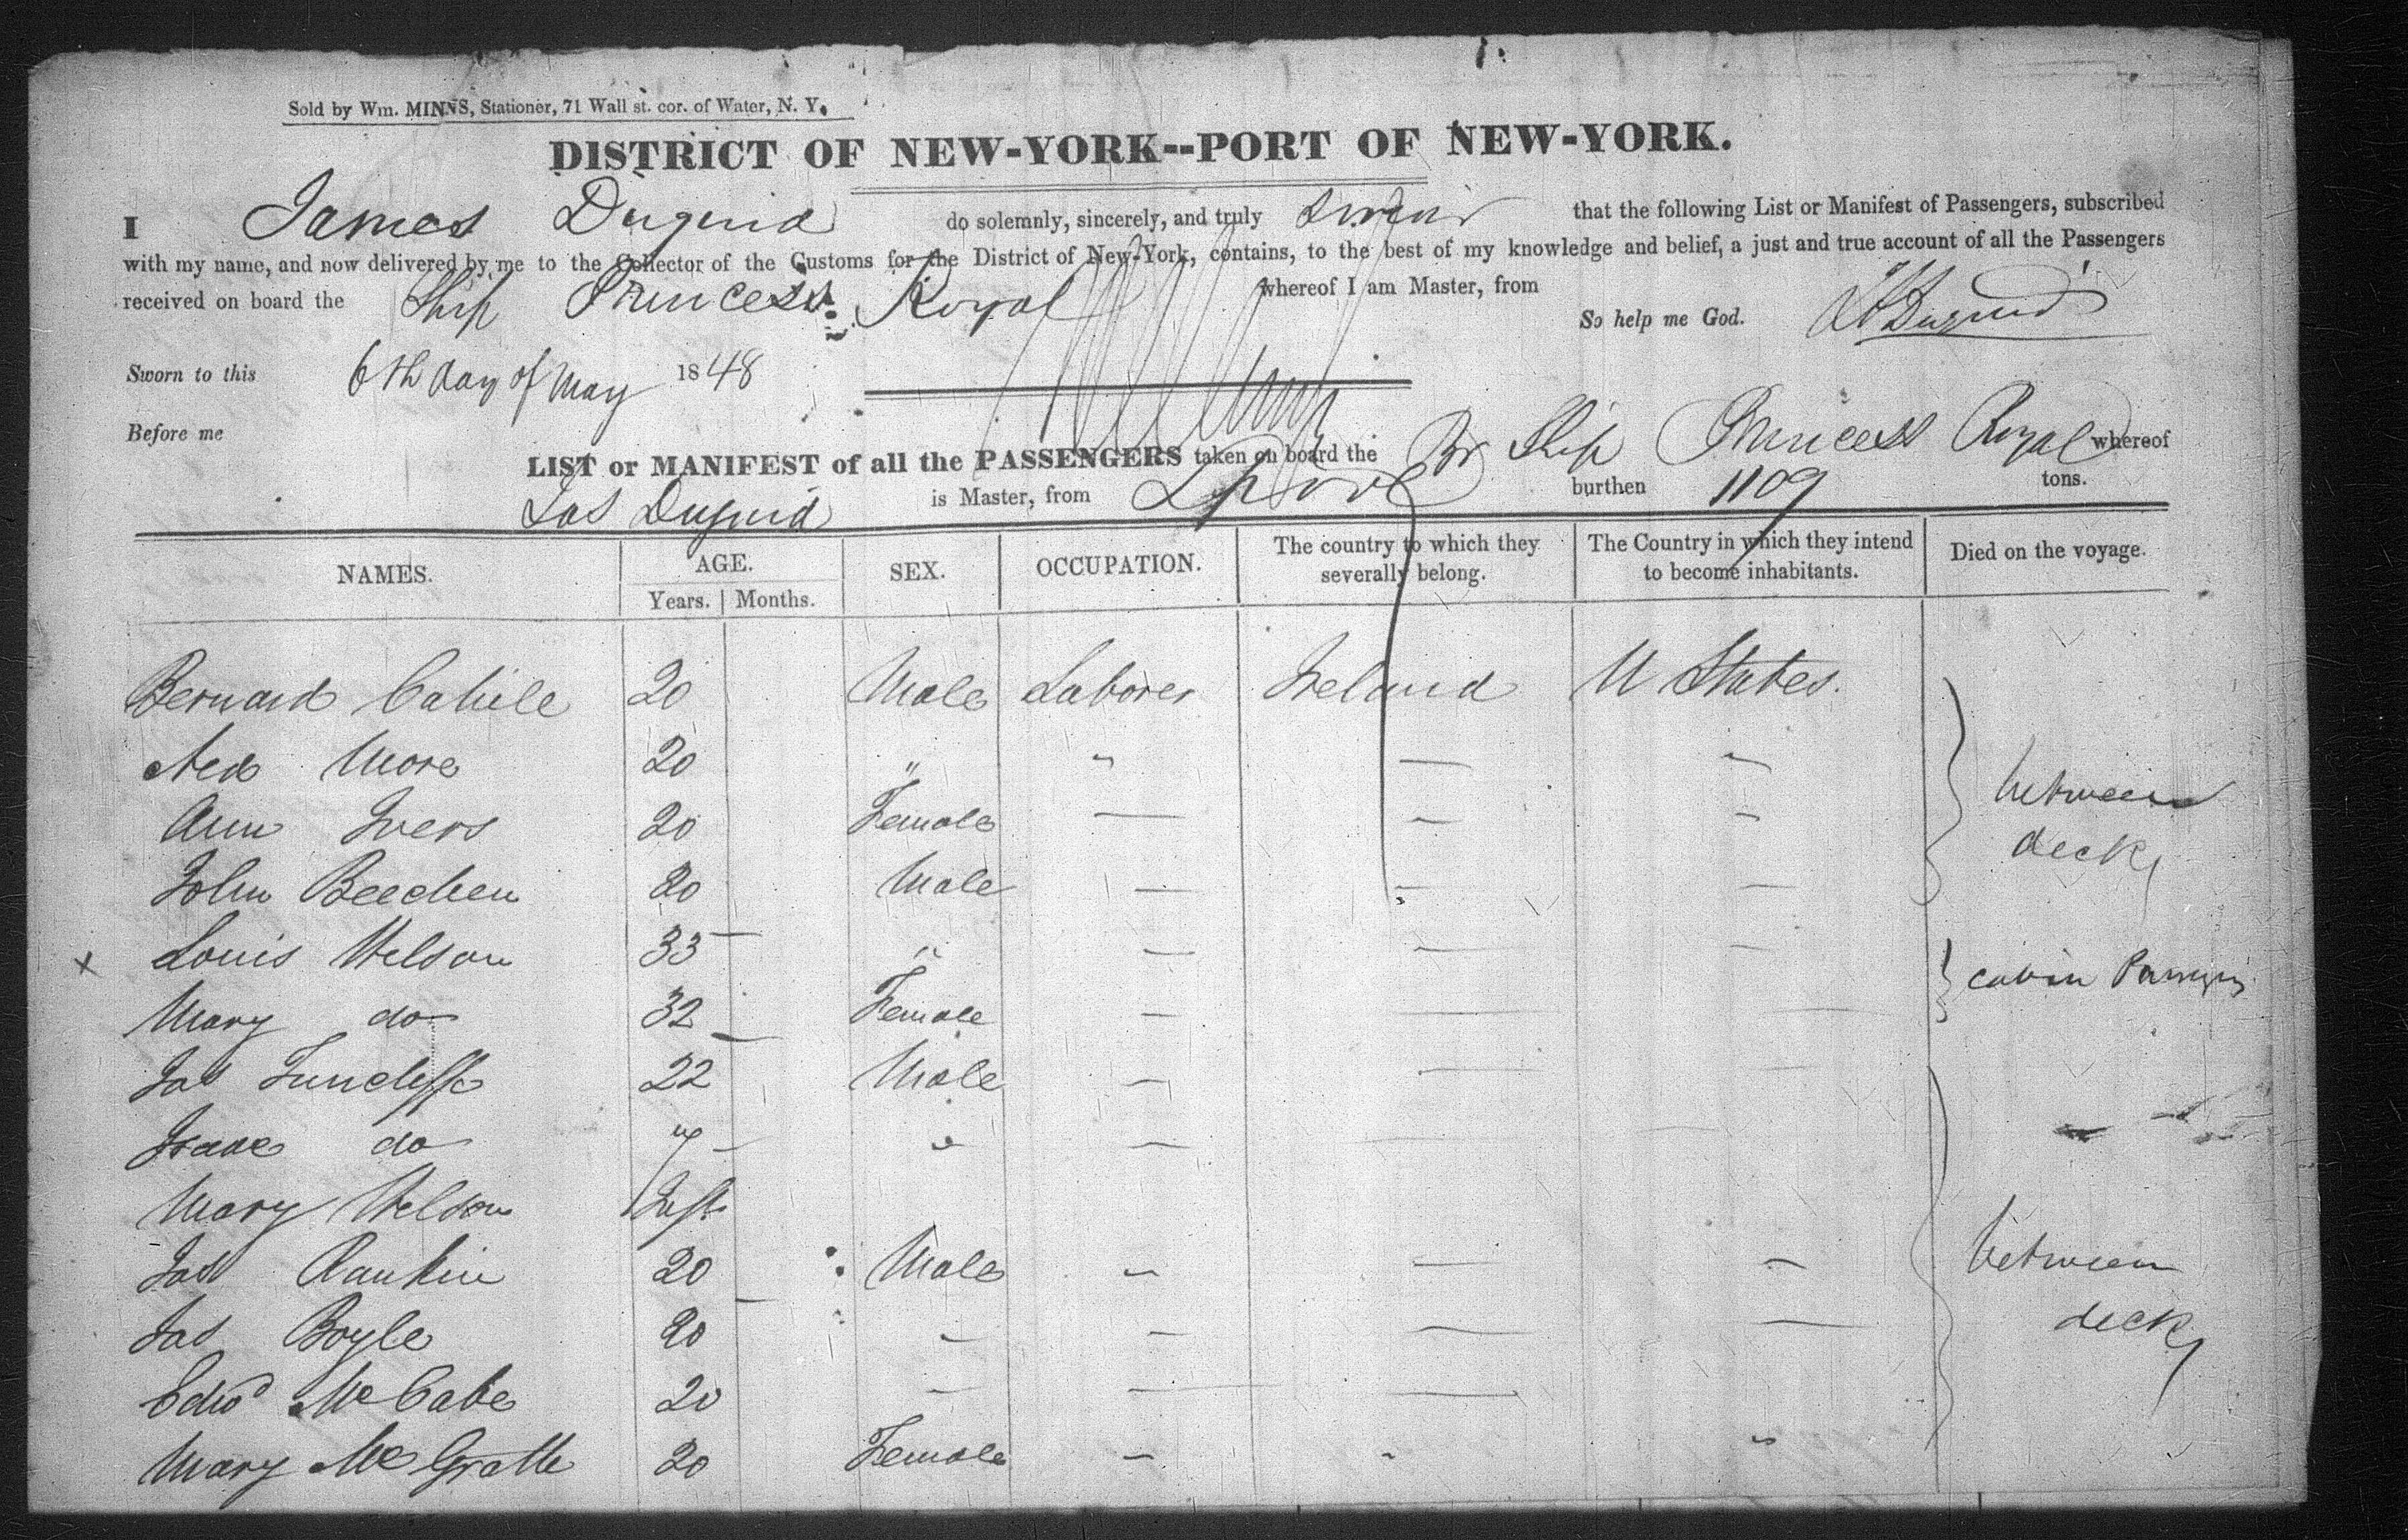 Sold by Wm. MINNS, Stationer, 71 Wall st. cor. of Water, N. Y.
DISTRICT OF NEW-YORK--PORT OF NEW-YORK.
I James Duguid do solemnly, sincerely, and truly swear that the following List or Manifest of Passengers, subscribed
with my name, and now delivered by me to the Collector of the Customs for the District of New-York, contains, to the best of my knowledge and belief, a just and true account of all the Passengers
received on board the Ship Princess Royal whereof I am Master, from
So help me God. Duguid
Sworn to this 6th day of May 1848
Before me
LIST or MANIFEST of all the PASSENGERS taken on board the Br Ship Princess Royal whereof
Jas Duguid is Master, from Lpool burthen 1109 tons.
NAMES. AGE. SEX. OCCUPATION. The country to which they severally belong. The Country in which they intend to become inhabitants. Died on the voyage.
Years. Months.
Bernard Cahile 20 Male Laborer Ireland U States.
Ned More 20 " " — "
Ann Ivers 20 Female — — — between
John Beechen 20 Male — — — deck
x Louis Welson 33 — " — — — cabin
Mary do 32 — Female — — —
Jas Tuncliffe 22 Male — — —
Isaac do 7 — " — — —
Mary Welson Inft
Jas Rankin 20 Male — — — between
Jas Boyle 20 — — — — deck
Edwd McCabe 20 — — —
Mary McGrath 20 Female — " "